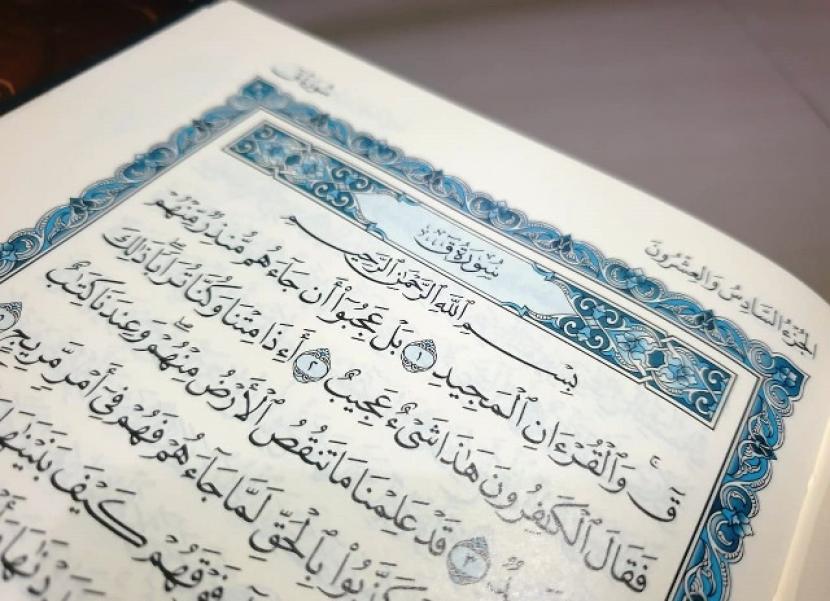 الجُزءُ السَّادِسُ وَالعِشرُونَ
سُورَةُ قٓ
سُورَةُ قٓ
بِسْمِ ٱللَّهِ ٱلرَّحْمَٰنِ ٱلرَّحِيمِ
قٓ وَٱلْقُرْءَانِ ٱلْمَجِيدِ ١ بَلْ عَجِبُوٓا۟ أَن جَآءَهُم مُّنذِرٌ مِّنْهُمْ
فَقَالَ ٱلْكَٰفِرُونَ هَٰذَا شَىْءٌ عَجِيبٌ ٢ أَءِذَا مِتْنَا وَكُنَّا تُرَابًا ذَٰلِكَ
٣ قَدْ عَلِمْنَا مَا تَنقُصُ ٱلْأَرْضُ مِنْهُمْ وَعِندَنَا كِتَٰبٌ
كَذَّبُوا۟ بِٱلْحَقِّ لَمَّا جَآءَهُمْ فَهُمْ فِىٓ أَمْرٍ مَّرِيجٍ
فَوْقَهُمْ كَيْفَ بَنَيْنَٰهَا